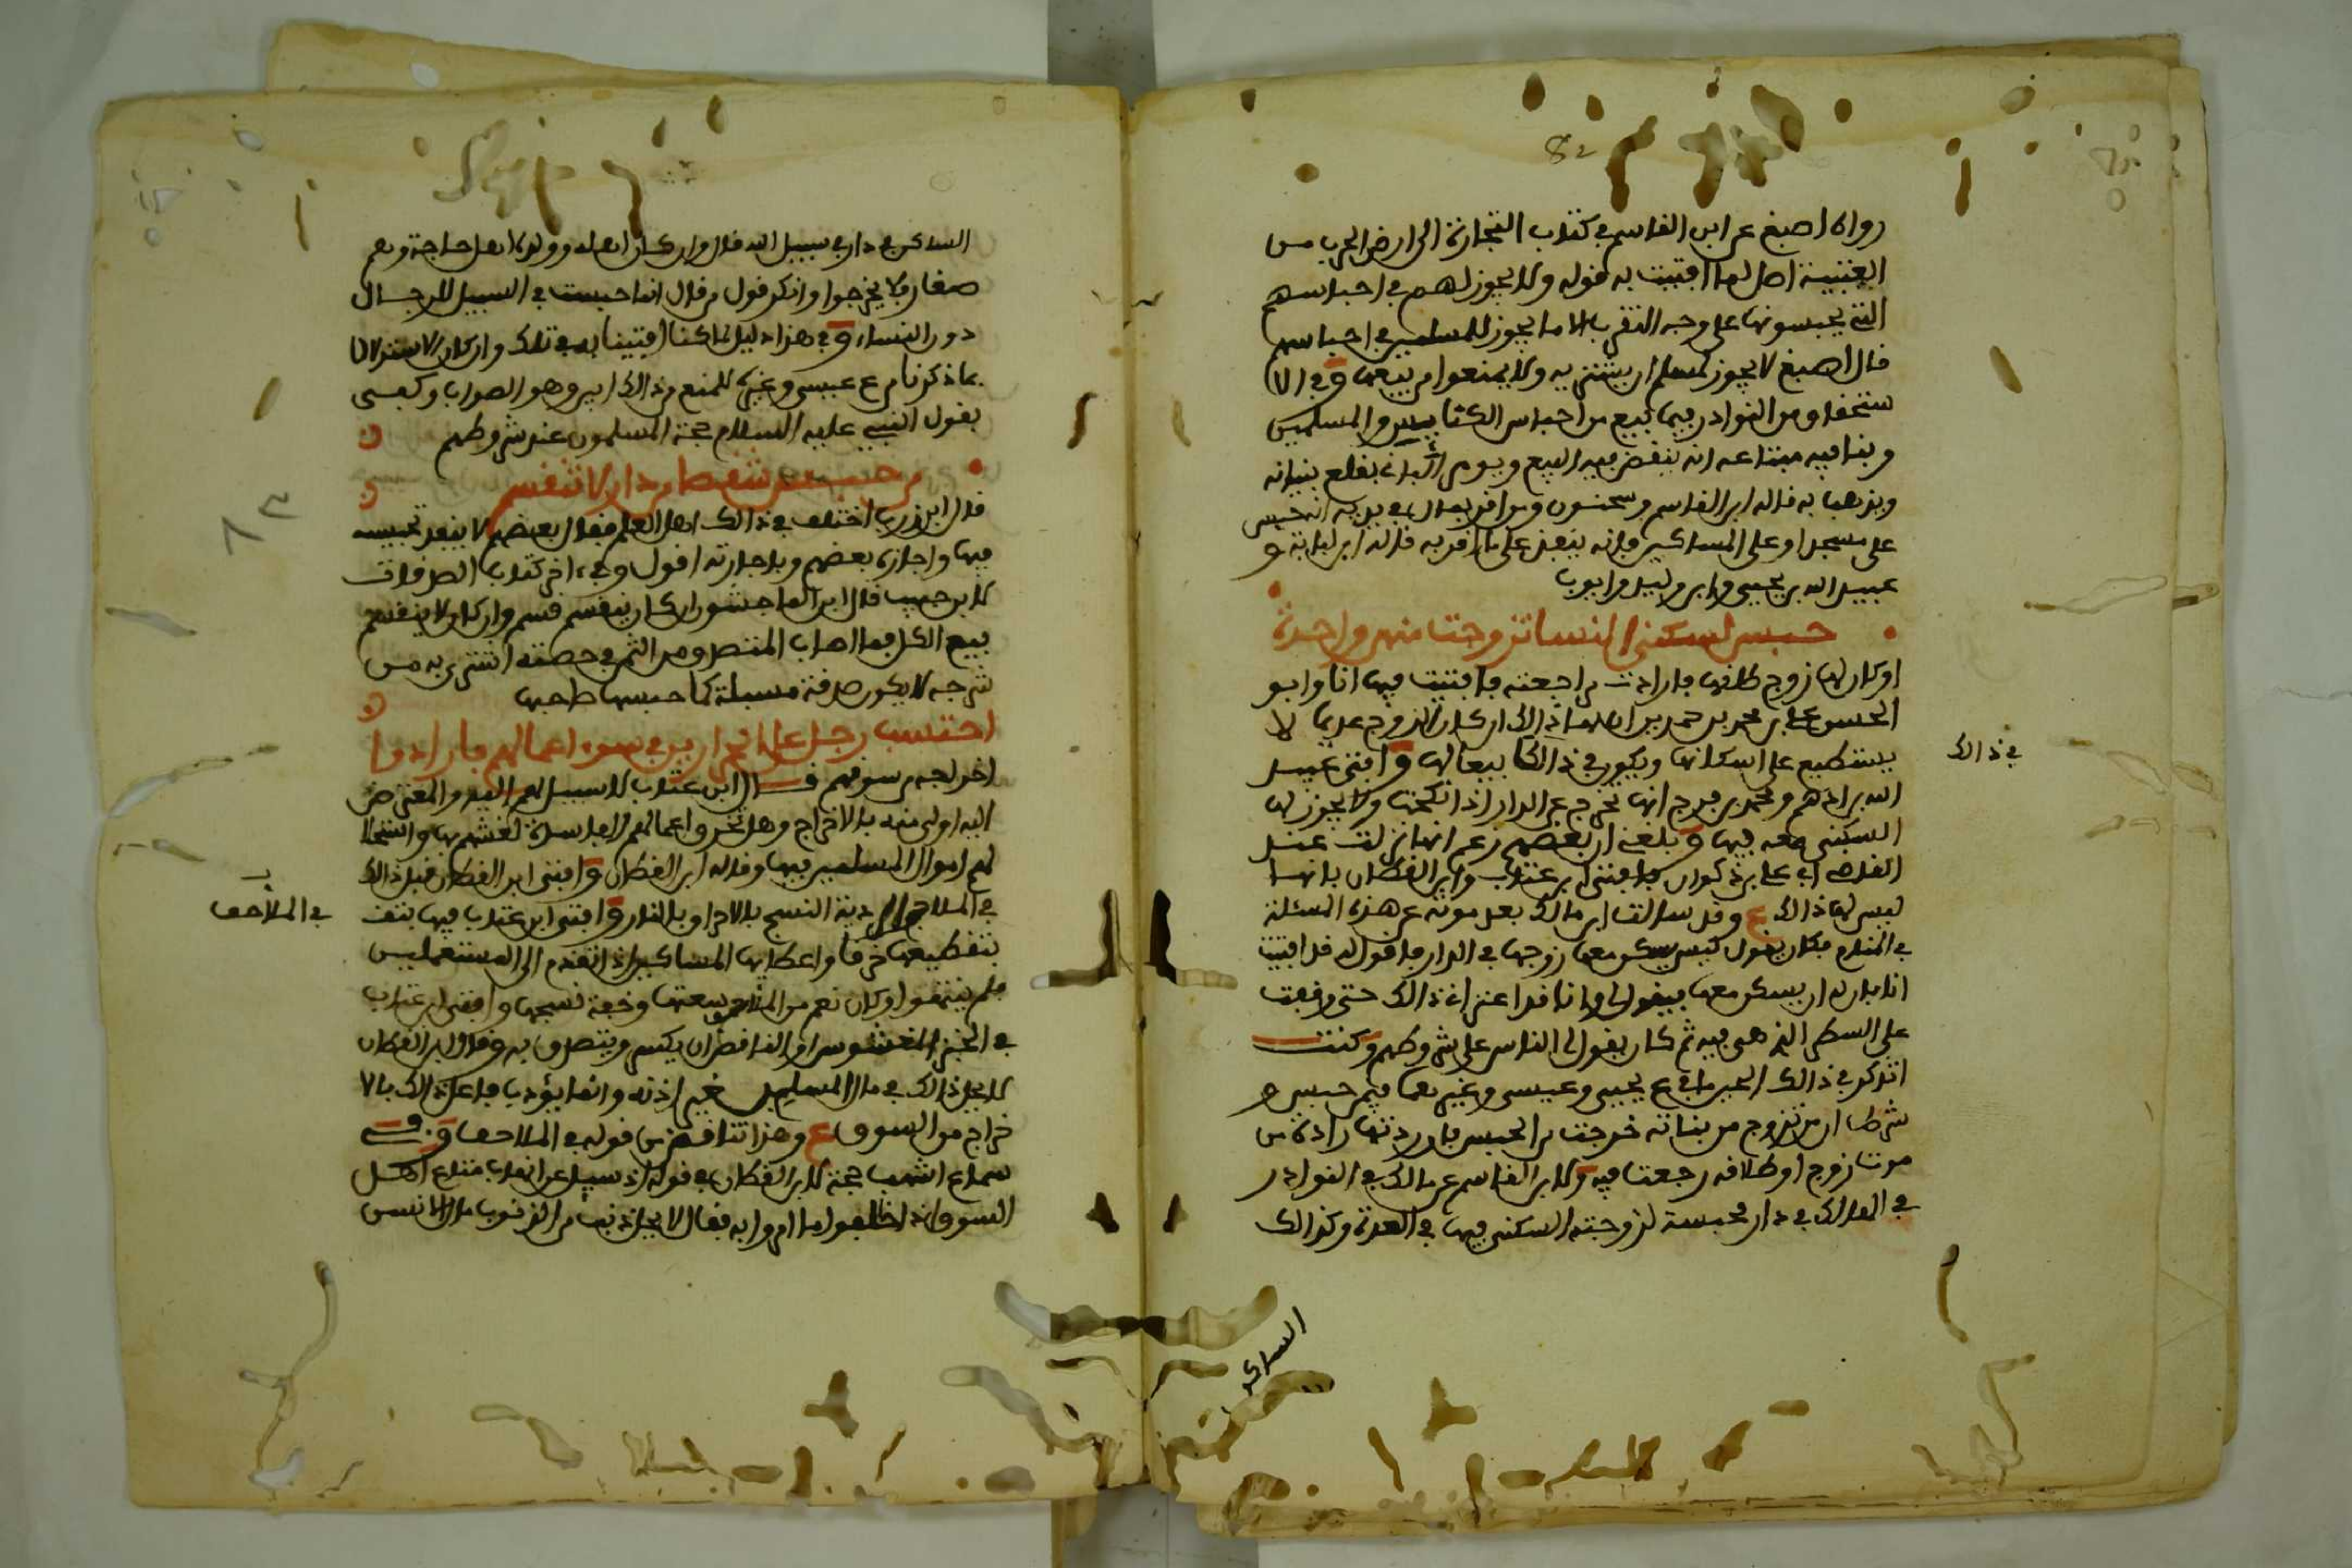 82
رواه اصبغ عن ابن القاسم في كتاب التجارة الى ارض الحرب من
العتبية اصل لما افتيت به قوله ولا يجوز لهم في احباسهم
التي يحبسونها على وجه التقرب الا ما يجوز للمسلمين في احباسهم
قال اصبغ لا يجوز لمسلم ان يشتريه ولا يمنعوا من بيعها وفي الا
ستخفا ومن النوادر فيما بيع من احباس الكتابيين والمسلمين
وبنا فيه مبتاعه انه ينقض فيه البيع ويومر الباني بقلع بنيانه
ويذهبا به قاله ابن القاسم وسحنون ومن اقر بمال في يديه انه حبس
على مسجد او على المساكين فانه ينفذ على ما اقر به قاله ابن لبابة و
عبيد الله بن يحيى وابن وليد وايوب
حبس لسكنى النسا تزوجت منهن واحدة
او كان لها زوج طلقها فارادت مراجعته فافتيت فيها انا وابو
الحسن علي بن محمد بن حمدين ان لها ذلك ان كان الزوج عديما لا
يستطيع على اسكانها ويكون في ذالك تبعا لها وافتى عبيد
في ذالك
الله بن ادهم ومحمد بن فرج انها تخرج عن الدار اذا نكحت ولا يجوز لها
السكنى معه فيها وبلغني ان بعضهم زعم انها نزلت عند
القاضي ابي علي بن ذكوان فافتى ابن عتاب وابن القطان بانها
ليس لها ذالك ع وقد سالت ابن مالك بعد موته عن هذه المسئلة
في المنام فكان يقول كيف يسكن معها زوجها في الدار فاقول له قد افتيت
انا بان له ان يسكن معها فيقول لي وانا قد اعتراني ذالك حتى وقفت
على السطر الذي هي فيه ثم كان يقول لي الناس على شروطهم وكنت
اتذكر في ذالك الحين ما في ع يحيى وعيسى وغيرهما فيمن حبس و
شرط ان من تزوج من بناته خرجت من الحبس فان ردتها رادة من
موت زوج او طلاقه رجعت فيه ولابن القاسم عن مالك في النوادر
في الهالك في دار محبسة لزوجته السكنى فيها في العدة وكذالك
الساكن
الساكن في دار في سبيل الله قال وان كان اهله وولده اهل حاجة وهم
صغار فلا يخرجوا وانكر قول من قال انما حبست في السبيل للرجال
دون النساء وفي هذا دليل لما كنا افتينا به في تلك وان كان الاستدلال
بما ذكرنا من ع عيسى وغيره للمنع من ذالك ابين وهو الصواب وكفى
بقول النبي عليه السلام حجة المسلمون عند شروطهم
من حبس شقصا من دار لا تنقسم
قال ابن زرب اختلف في ذالك اهل العلم فقال بعضهم لا ينفذ تحبيسه
فيها واجازه بعضهم وباجازته اقول وفي اخر كتاب الصدقات
لابن حبيب قال ابن الماجشون ان كان ينقسم قسم وان كان لا ينقسم
بيع الكل فما اصاب المتصدق من الثمن في حصته اشتري به من
شرجه لا يكون صدقة مسبلة كما حبسها صاحبها
احتسب رجل على الخرازين في سوء اعمالهم فارادوا
اخراجه من سوقهم قال ابن عتاب لا سبيل لهم اليه والمعترض
اليه اولى منه بالاخراج وهل تحرق اعمالهم الفاسدة لغشهم بها واستحلا
لهم اموال المسلمين فيها وقاله ابن القطان وافتى ابن القطان قبل ذالك
في الملاحف الردية النسج بالاحراق بالنار وافتى ابن عتاب فيها بتف
في الملاحف
بتقطيعها خرقا واعطايها المساكين اذا تقدم الى المستعملين
فلم ينتهوا وكان نعم من الملاحف سعتها وخفة نسجها وافتى ابن عتاب
في الخبز المغشوش او الناقص ان يكسر ويتصدق به وقال ابن القطان
لا يحل ذالك في مال المسلم بغير اذنه وانما يؤدب فاعل ذالك بالا
خراج من السوق ع وهذا تناقض من قوله في الملاحف وفي
سماع اشهب حجة لابن القطان في قوله اذ سئل عن انهاب متاع اهل
السوق اذا خالفوا ما امروا به فقال لا يحل ذنب من الذنوب مال انسان